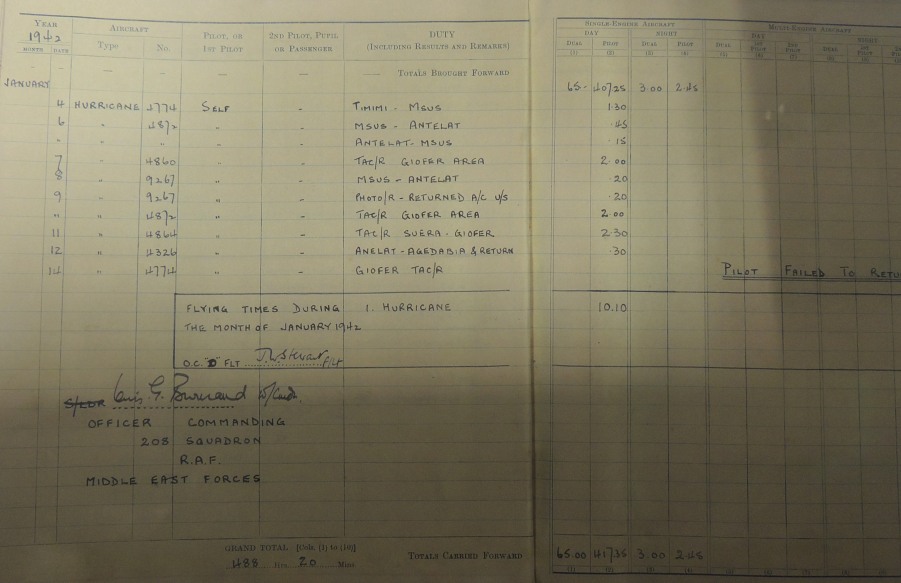 YEAR AIRCRAFT PILOT, OR 2ND PILOT, PUPIL DUTY SINGLE-ENGINE AIRCRAFT MULTI-ENGINE AIRCRAFT
1942 1ST PILOT OR PASSENGER (INCLUDING RESULTS AND REMARKS) DAY NIGHT DAY
MONTH DATE Type No. DUAL PILOT DUAL PILOT 1ST PILOT 2ND PILOT DUAL
(1) (2) (3) (4)
— — — — — — — TOTALS BROUGHT FORWARD 65- 407.25 3.00 2.45
JANUARY
4 HURRICANE 4774 SELF - TIMIMI - MSUS 1.30
6 " 4872 " - MSUS - ANTELAT .45
" " " " - ANTELAT - MSUS .15
7 " 4860 " - TAC/R GIOFER AREA 2.00
8 " 9267 " - MSUS - ANTELAT .20
9 " 9267 " - PHOTO/R - RETURNED A/C U/S .20
" " 4872 " - TAC/R GIOFER AREA 2.00
11 " 4864 " - TAC/R SUERA - GIOFER 2.30
12 " 4326 " - ANELAT - AGEDABIA & RETURN .30
14 " 4774 " - GIOFER TAC/R PILOT FAILED TO RETU
FLYING TIMES DURING 1. HURRICANE 10.10
THE MONTH OF JANUARY 1942
O.C. "D" FLT J.W. Stewart F/Lt
S/LDR G. Burnand W/Cmdr.
OFFICER COMMANDING
208 SQUADRON
R.A.F.
MIDDLE EAST FORCES
GRAND TOTAL [Cols. (1) to (10)] TOTALS CARRIED FORWARD 65.00 417.35 3.00 2.45
488 Hrs. 20 Mins (1) (2) (3) (4)